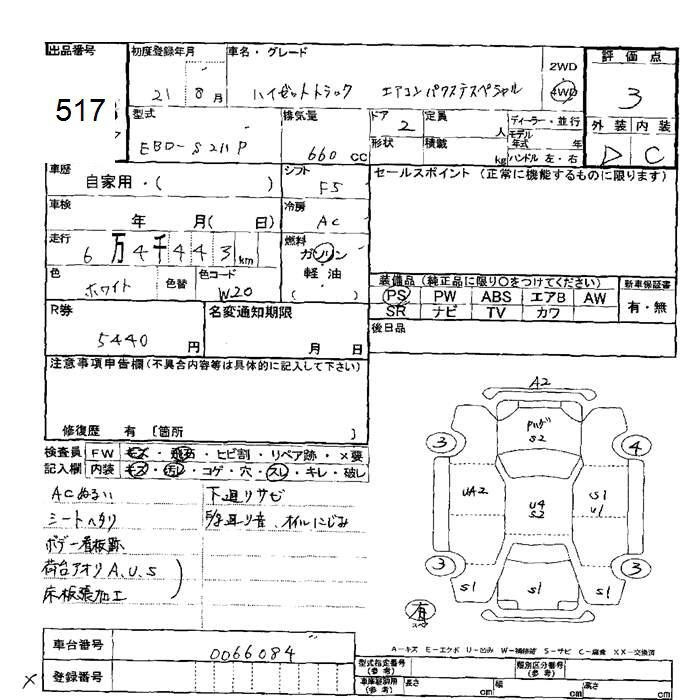 出品番号 初度登録年月 車名・グレード 2WD 評価点
517 21 8月 ハイゼットトラック エアコンパワステスペシャル 4WD 3
型式 排気量 ドア 定員 ディーラー・並行 外装 内装
2 人 モデル年式 年
EBD-S211P 660 cc 形状 積載 kg ハンドル 左・右 D C
車歴 シフト セールスポイント(正常に機能するものに限ります)
自家用・( ) F5
車検 冷房
年 月( 日) AC
走行 燃料
6万4千443km ガソリン
色 色替 色コード 軽油
ホワイト W20 ( )
装備品(純正品に限り○をつけてください) 新車保証書
PS PW ABS エアB AW 有・無
SR ナビ TV カワ
R券 名変通知期限 後日品
5440円 月 日
注意事項申告欄(不具合内容等は具体的に記入して下さい)
修復歴 有 〔箇所 〕
検査員 FW キズ・飛石・ヒビ割・リペア跡・×要
記入欄 内装 キズ・汚レ・コゲ・穴・スレ・キレ・破レ
ACぬるい 下廻りサビ
シートヘタリ
オイルにじみ
ボデー看板跡
荷台アオリ A、U、S
床板張加工
A2
S2
3 4
UA2 U4 S2 S1 U1
3 3
S1 S1 S1
有
A-キズ E-エクボ U-凹み W-補修跡 S-サビ C-腐食 XX-交換済
車台番号 0066084
型式指定番号(参考) 類別区分番号(参考)
× 登録番号
(参考) 長さ cm 幅 cm 高さ cm